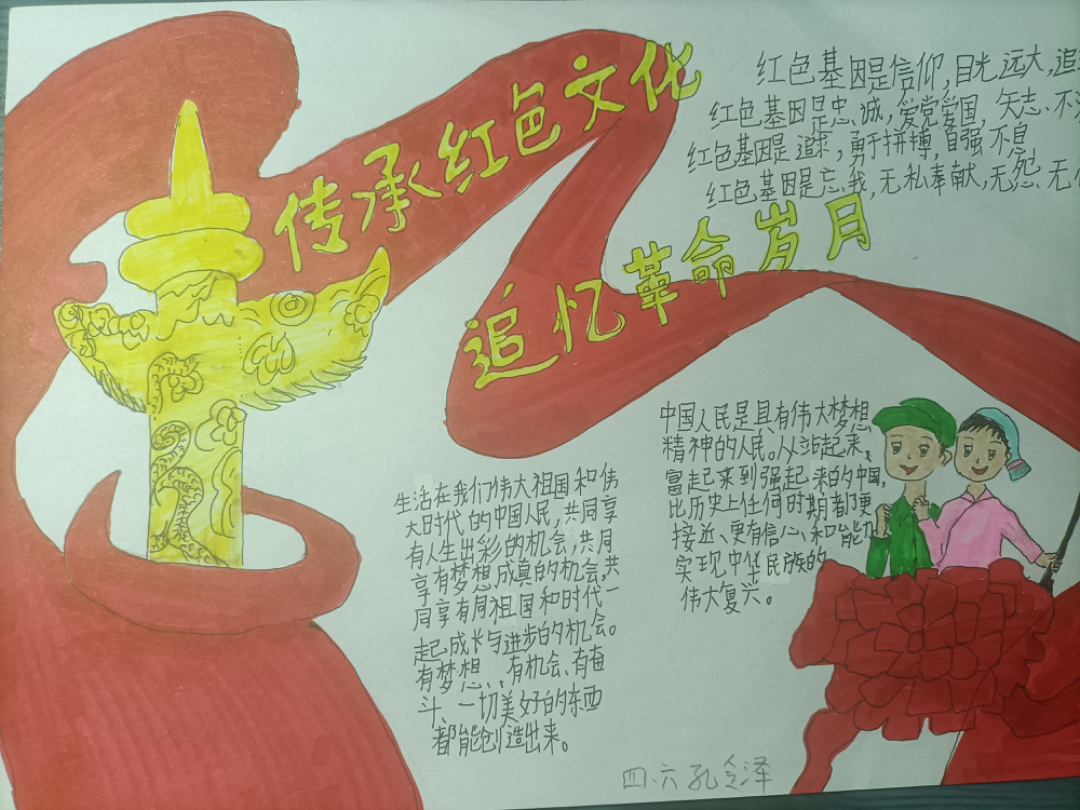 传承红色文化
追忆革命岁月
红色基因是信仰,目光远大,追
红色基因是忠、诚,爱党爱国,矢志、不
红色基因是追求,勇于拼搏,自强不息
红色基因是忘、我,无私奉献,无怨、无
中国人民是具有伟大梦想
精神的人民。从站起来、
富起来到强起来的中国,
比历史上任何时期都更
接近、更有信心、和能力
实现中华民族的
伟大复兴。
生活在我们伟大祖国和伟
大时代的中国人民,共同享
有人生出彩的机会,共同
享有梦想成真的机会,共
同享有同祖国和时代一
起成长与进步的机会。
有梦想、,有机会、有奋
斗、一切美好的东西
都能创造出来。
四.六孔令泽